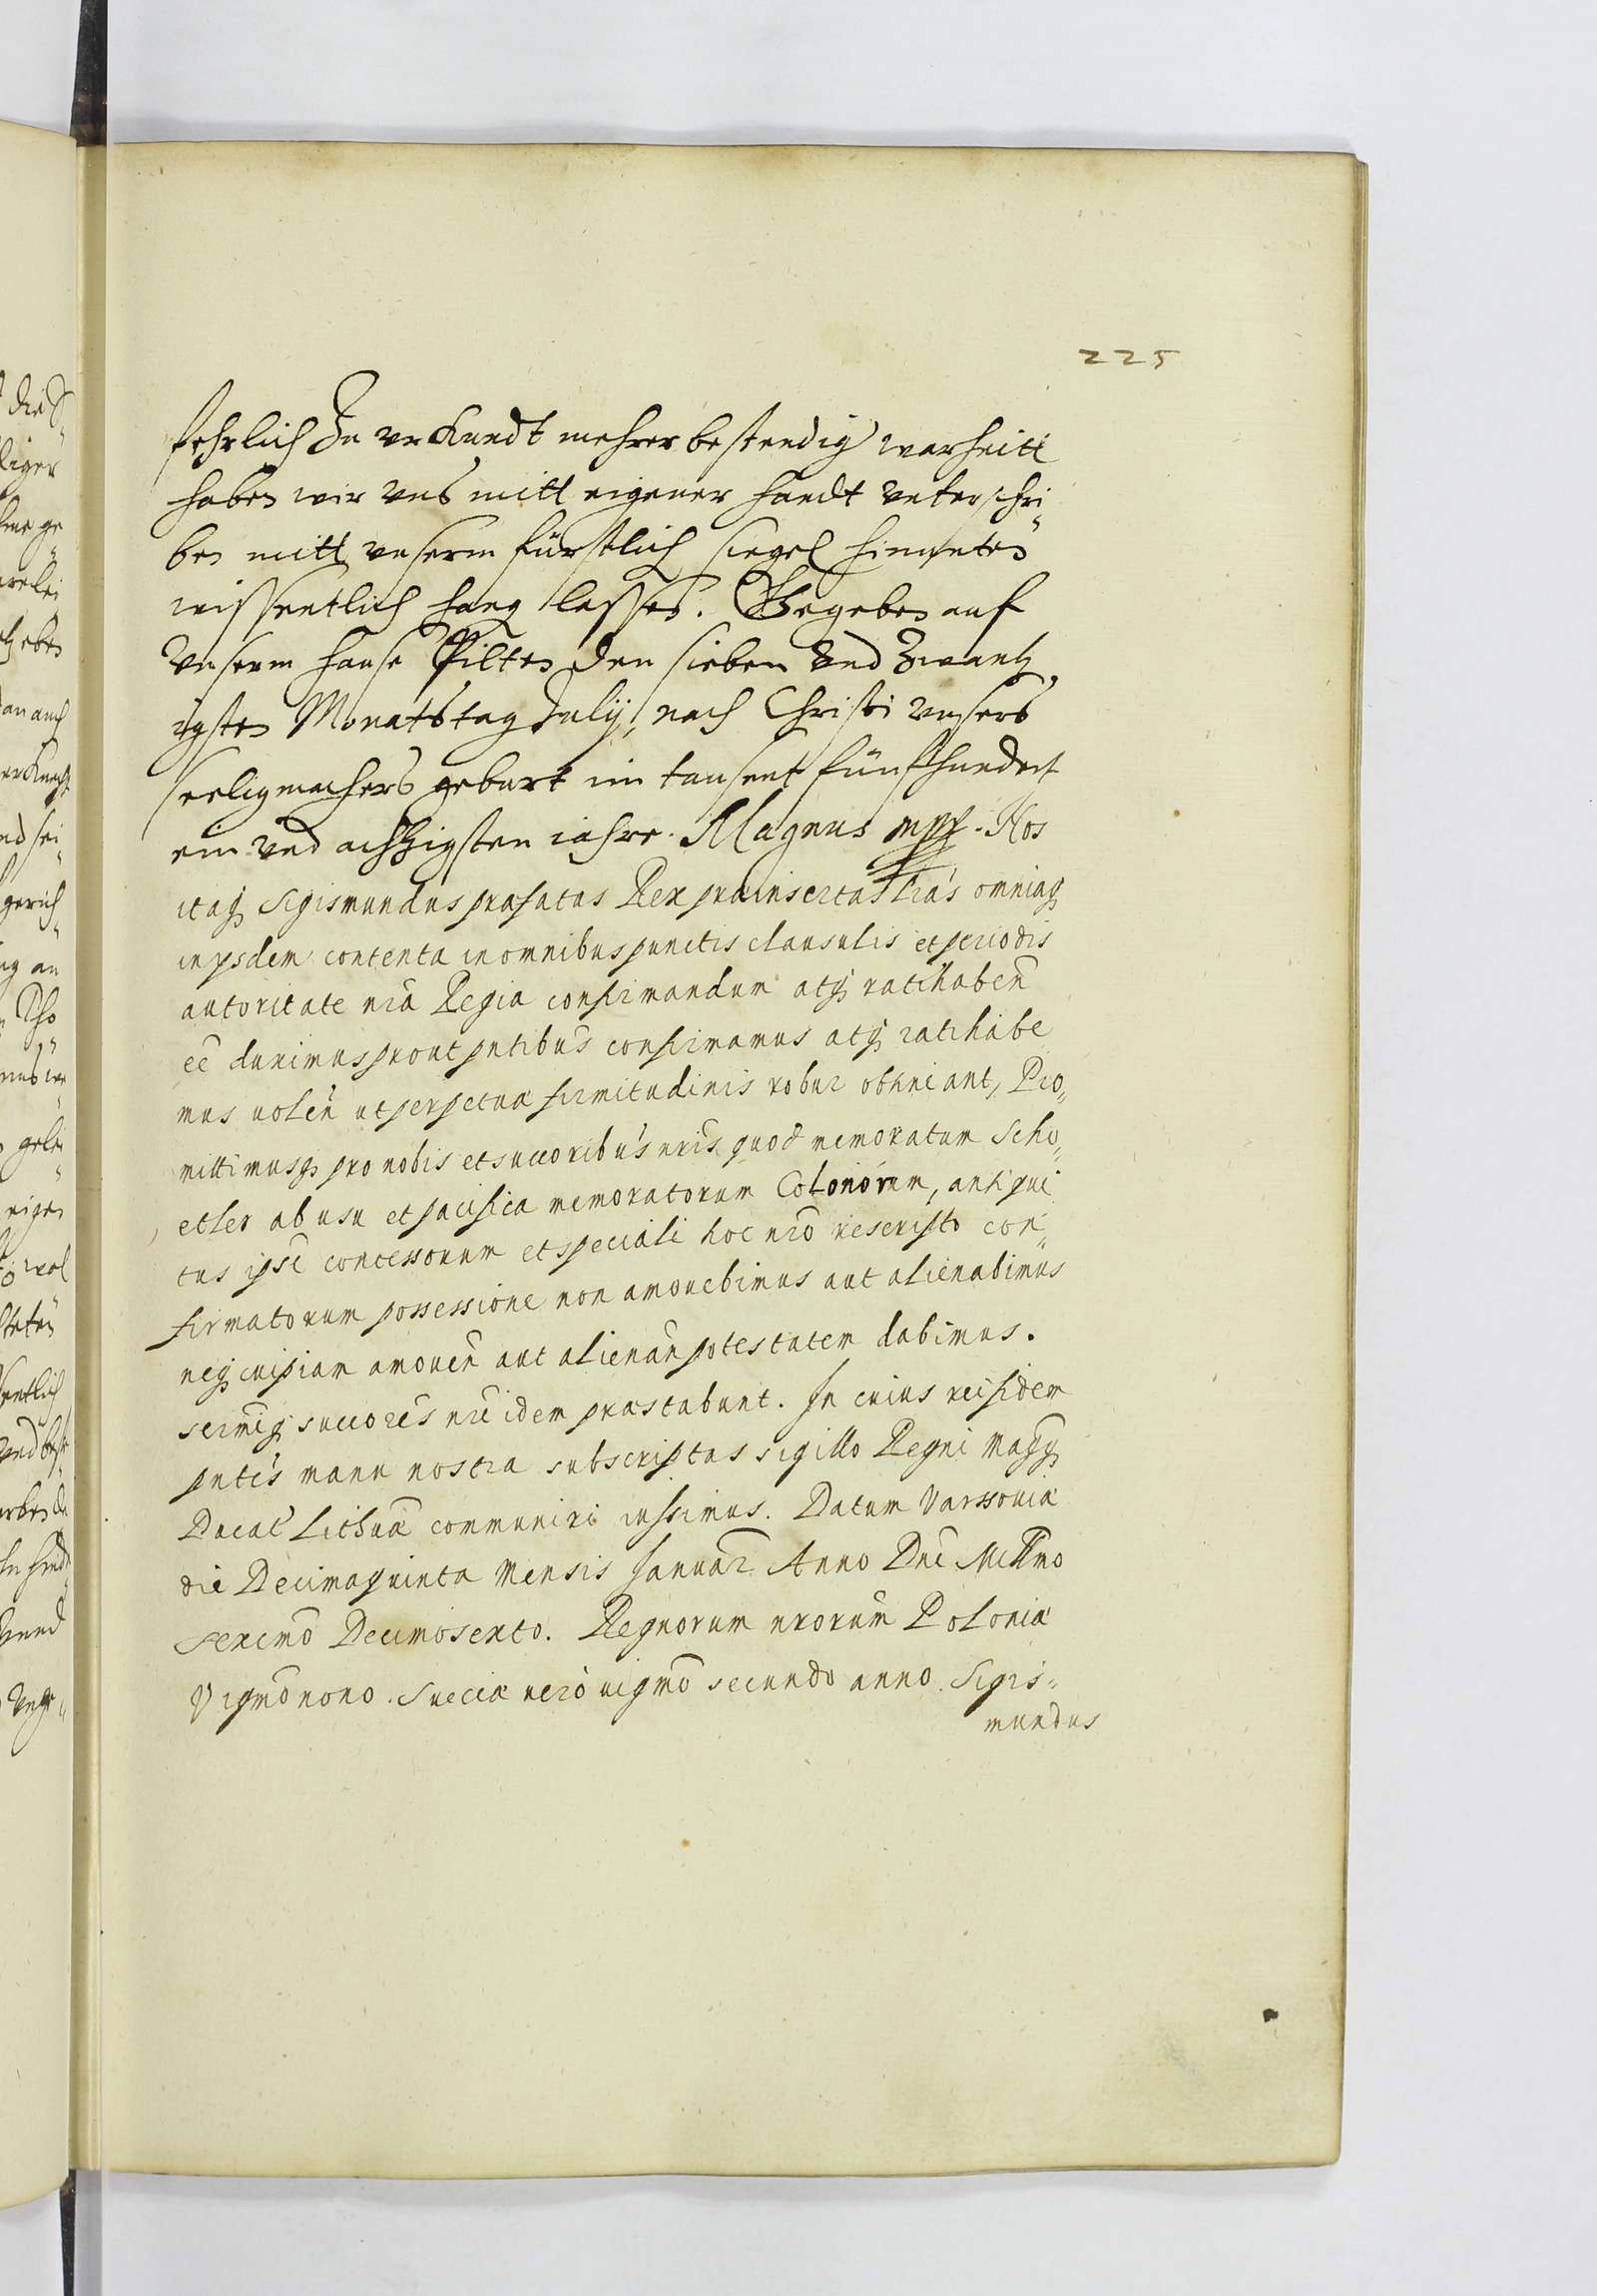 225
fehrlich Zu urkundt mehrer bestendig warheitt
haben wir uns mitt eigener handt unterschri-
ben mitt unserm fürstlich siegel hirunten
wissentlich hang lassen. Gegeben auf
unserm hause Pilten den sieben und Zwantz
igsten Monatstag July, nach Christi unsers
seeligmachers geburt im tausent fünfhundert
ein und achtzigsten iahre. Magnus mpp. Nos
itaq Sigismundus præfatus Rex præinsertas lras omniaq
in ysdem contenta in omnibus punctis clausulis et periodis
autoritate nra Regia confirmandum atq ratihaben
ee duximus prout pntibus confirmamus atq ratihabe
mus volen ut perpetuæ firmitudinis robur obtineant, Pro-
mittimusq pro nobis et succoribus nris quod memoratum Scho-
etler ab usu et pacifica memoratorum Colonorum, antiqui
tus ipsi concessorum et speciali hoc nro rescripto con-
firmatorum possessione non amovebimus aut alienabimus
neq cuipiam amoven aut alienan potestatem dabimus.
sermiq succores nri idem præstabunt. In cuius rei fidem
pntes manu nostra subscriptas sigillo Regni Magq
Ducat Lithuæ communiri iussimus. Datum Varssoviæ
die Decimaquinta Mensis Januar Anno Dni Millmo
sexcmo Decimosexto. Regnorum nrorum Poloniæ
Vigmo nono. Sueciæ vero vigmo secundo anno. Sigis-
mundus